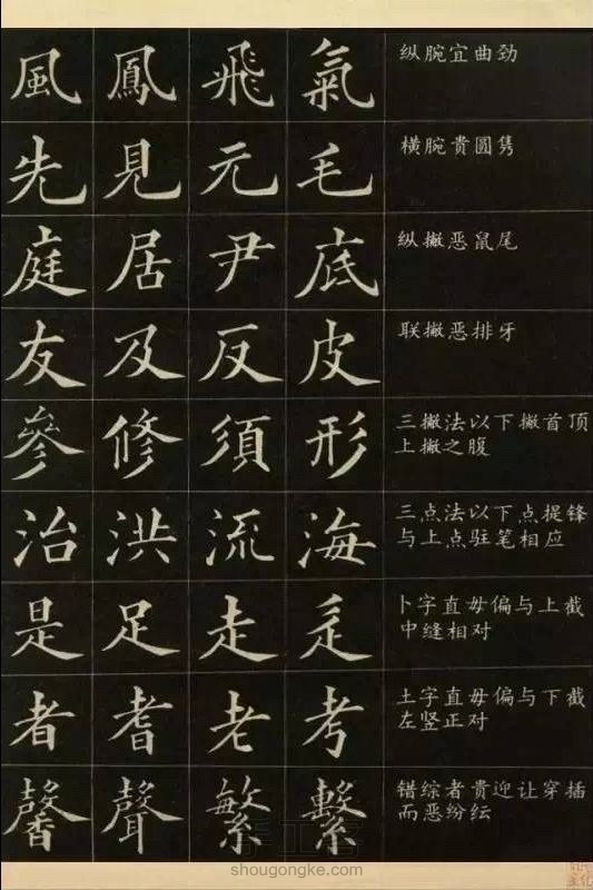 風 鳳 飛 氣 纵腕宜曲劲
先 見 元 毛 横腕貴圓隽
庭 居 尹 底 纵撇恶鼠尾
友 及 反 皮 联撇恶排牙
參 修 須 形 三撇法以下撇首顶
上撇之腹
治 洪 流 海 三点法以下点提锋
与上点驻笔相应
是 足 走 卜字直毋偏与上截
中缝相对
者 耆 老 考 土字直毋偏与下截
左竖正对
馨 聲 繁 繫 错综者贵迎让穿插
而恶纷纭
手工客
shougongke.com